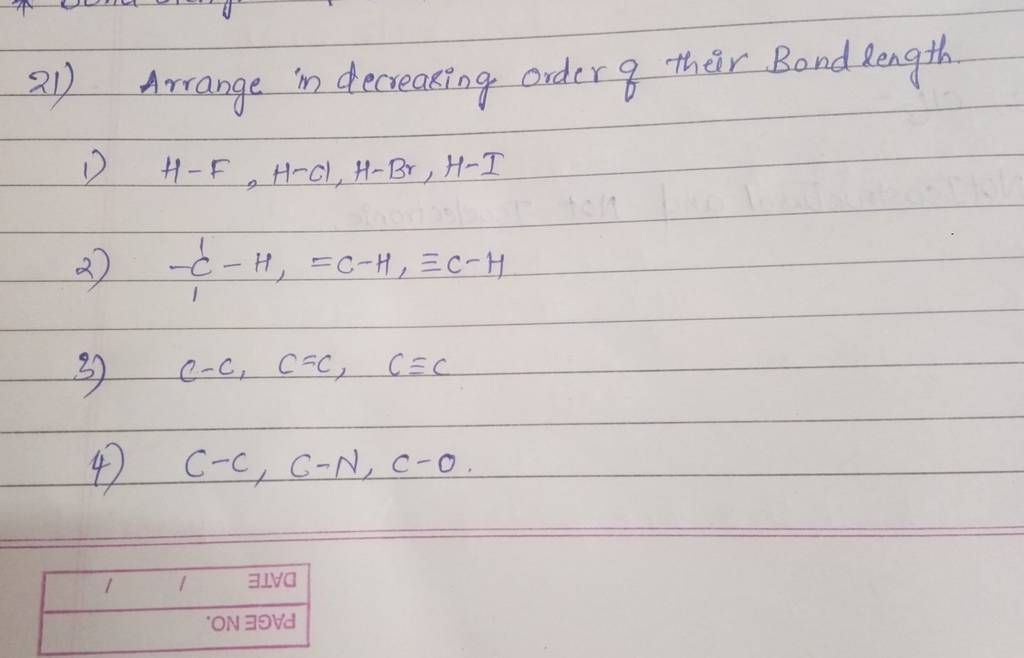 21) Arrange in decreasing order of their Bond length.
1) H-F, H-Cl, H-Br, H-I
2) -C-H, =C-H, ≡C-H
3) C-C, C=C, C≡C
4) C-C, C-N, C-O.
DATE / /
PAGE NO.